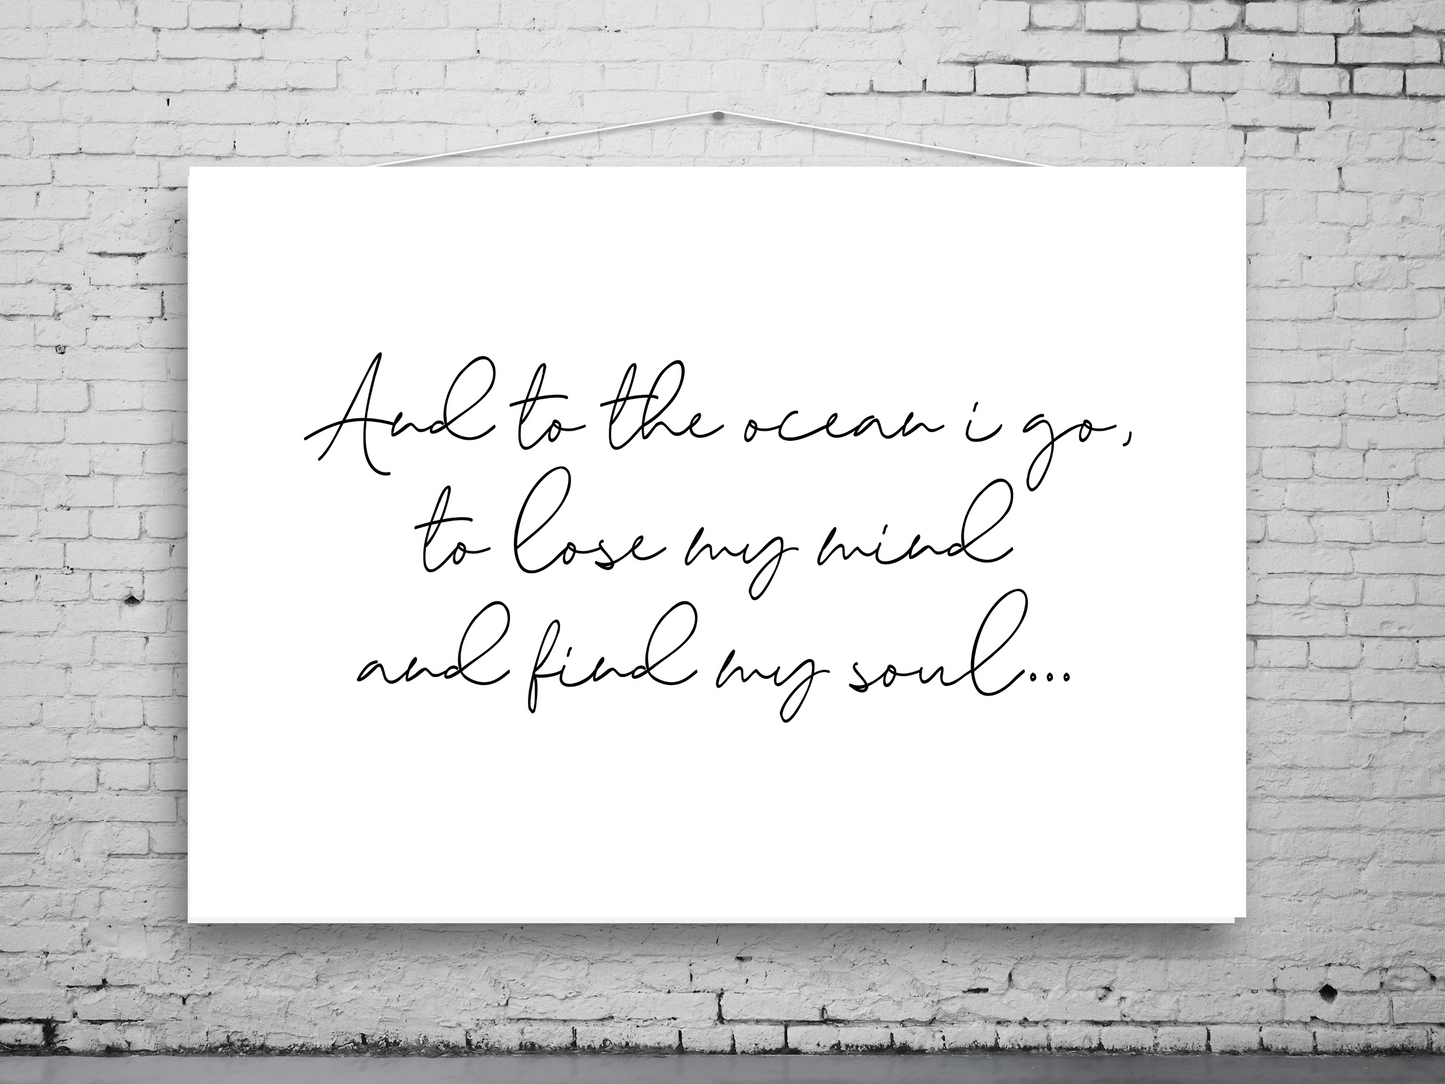 And to the ocean i go,
to lose my mind
and find my soul...